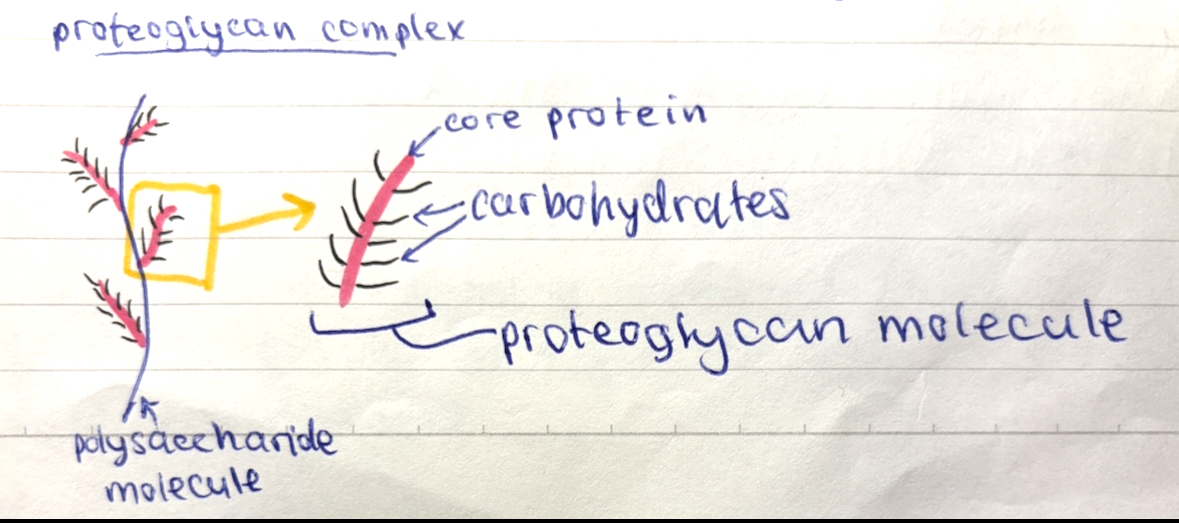 proteoglycan complex
core protein
carbohydrates
proteoglycan molecule
polysaccharide
molecule